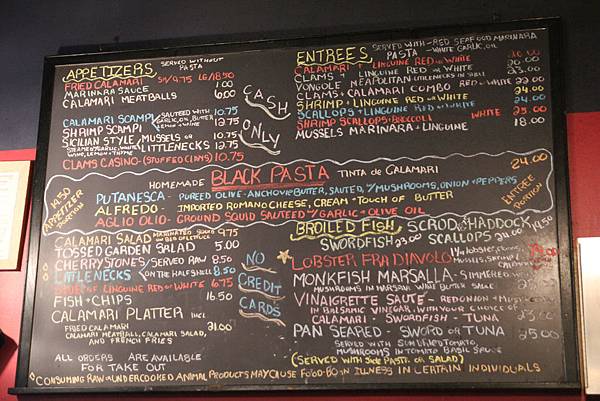 APPETIZERS SERVED WITHOUT PASTA
FRIED CALAMARI SM/9.75 LG/18.50
MARINARA SAUCE 1.00
CALAMARI MEATBALLS 6.00
CALAMARI SCAMPI 10.75
SHRIMP SCAMPI 12.75
SAUTEED WITH GARLIC, ONION, BUTTER, LEMON + WINE
SICILIAN STYLE/MUSSELS OR 10.75
LITTLENECKS 12.75
WINE, LEMON + THYME
CLAMS CASINO-(STUFFED CLAMS) 10.75
CASH
ONLY
ENTREES SERVED WITH-RED SEAFOOD MARINARA
PASTA -WHITE GARLIC, OIL
CALAMARI + LINGUINE RED OR WHITE
CLAMS + LINGUINE RED OR WHITE
VONGOLE NEAPOLITAN LITTLENECKS IN
CLAMS + CALAMARI COMBO RED OR WHITE 22.00
SHRIMP + LINGUINE RED OR WHITE 24.00
SCALLOPS + LINGUINE RED OR WHITE 24.00
SHRIMP SCALLOPS + BROCCOLI WHITE 25.00
MUSSELS MARINARA + LINGUINE 18.00
14.50 APPETIZER PORTION
HOMEMADE BLACK PASTA TINTA DE CALAMARI
24.00 ENTREE PORTION
PUTANESCA- PUREED OLIVE-ANCHOVIE BUTTER, SAUTED, W/MUSHROOMS, ONION + PEPPERS
ALFREDO- IMPORTED ROMANO CHEESE, CREAM + TOUCH OF BUTTER
AGLIO OLIO- GROUND SQUID SAUTEED W/GARLIC + OLIVE OIL
CALAMARI SALAD 9.75
TOSSED GARDEN SALAD 5.00
CHERRYSTONES/SERVED RAW 8.50
LITTLENECKS (ON THE HALF SHELL) 8.50
OF LINGUINE RED OR WHITE 6.75
FISH + CHIPS 16.50
CALAMARI PLATTER INCL
FRIED CALAMARI 21.00
CALAMARI MEATBALL, CALAMARI SALAD,
AND FRENCH FRIES
ALL ORDERS ARE AVAILABLE
FOR TAKE OUT
NO
CREDIT
CARDS
BROILED FISH SCROD OR HADDOCK 19.50
SWORDFISH 23.00 SCALLOPS 24.00
LOBSTER FRA DIAVOLO
MONKFISH MARSALLA- SIMMERED
MUSHROOMS IN MARSALA WINE BUTTER SAUCE
VINAIGRETTE SAUTE- RED ONION +
IN BALSAMIC VINEGAR, WITH YOUR CHOICE OF
CALAMARI - SWORDFISH TUNA
PAN SEARED - SWORD OR TUNA 25.00
SERVED WITH SUNDRIED TOMATO,
MUSHROOMS IN TOMATO BASIL SAUCE
(SERVED WITH SIDE PASTA OR SALAD)
*CONSUMING RAW OR UNDERCOOKED ANIMAL PRODUCTS MAY CAUSE FOOD-BORN ILLNESS IN CERTAIN INDIVIDUALS